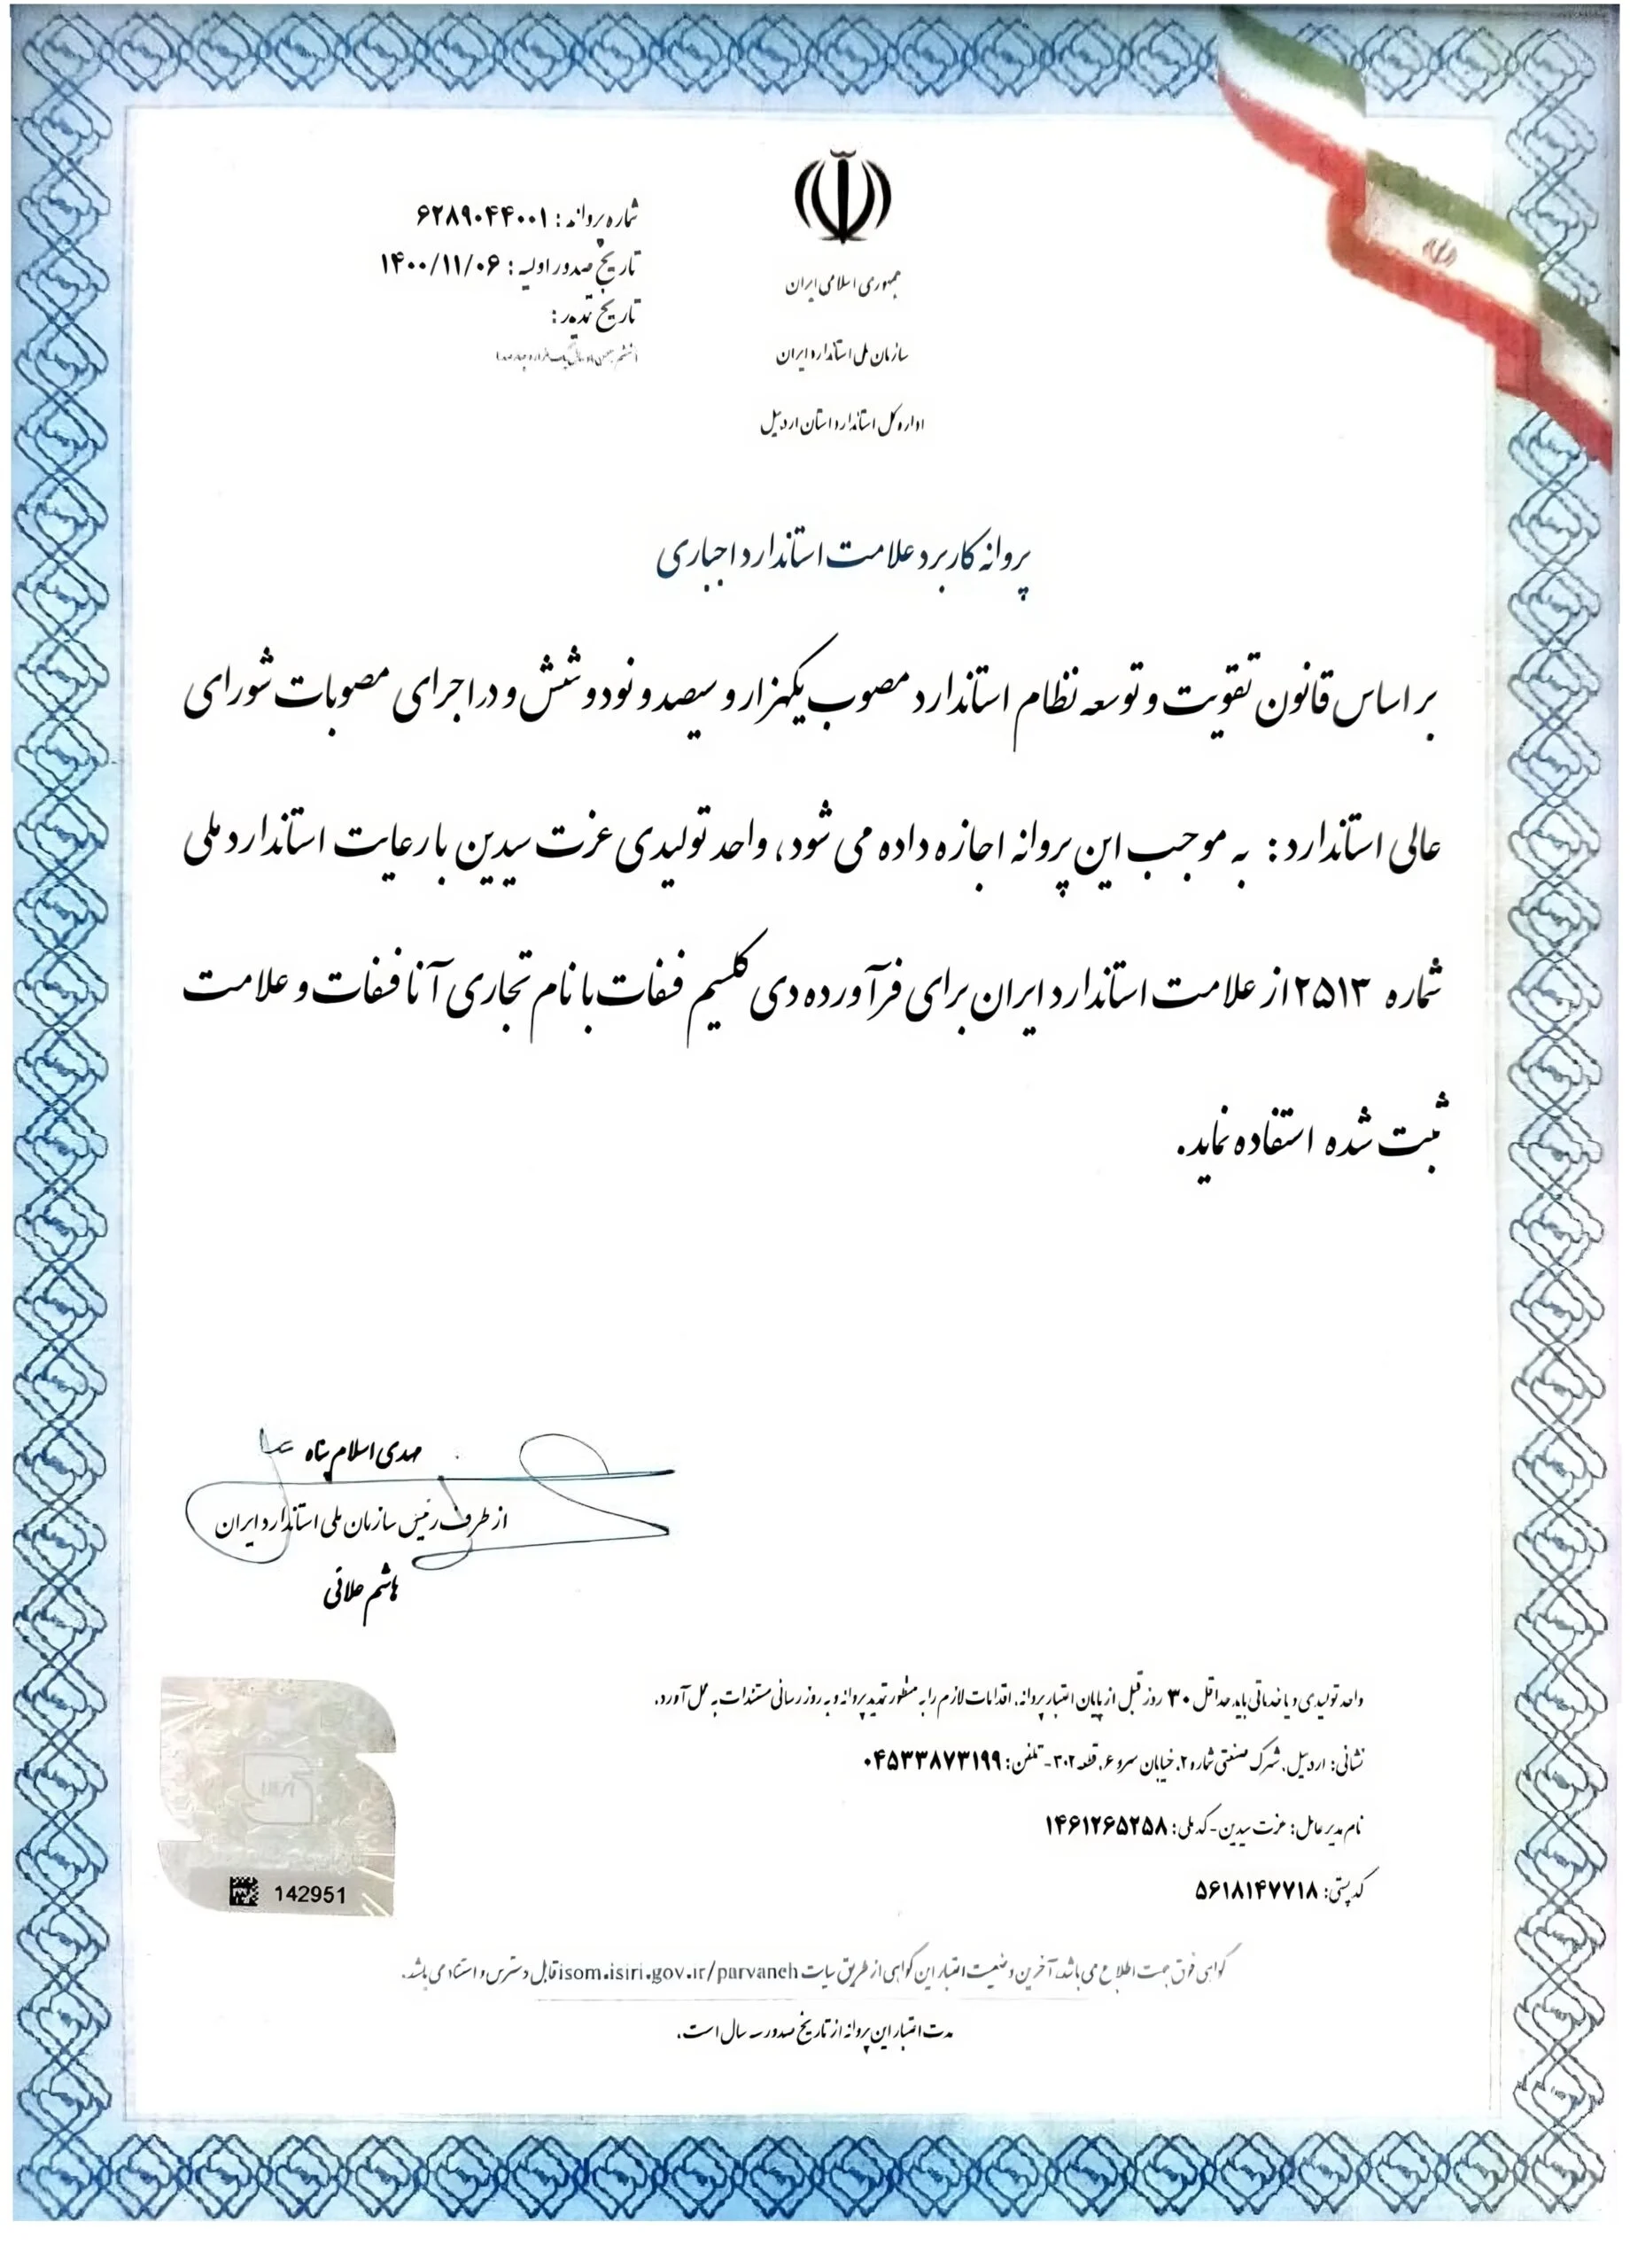 جمهوری اسلامی ایران
سازمان ملی استاندارد ایران
اداره کل استاندارد استان اردبیل
شماره پروانه : ۶۲۸۹۰۴۴۰۰۱
تاریخ صدور اولیه : ۱۴۰۰/۱۱/۰۶
تاریخ تمدید :
(ششم بهمن ماه سال یک هزار و چهارصد)
پروانه کاربرد علامت استاندارد اجباری
بر اساس قانون تقویت و توسعه نظام استاندارد مصوب یکهزار و سیصد و نود و شش و در اجرای مصوبات شورای
عالی استاندارد : به موجب این پروانه اجازه داده می شود، واحد تولیدی عزت سیدین با رعایت استاندارد ملی
شماره ۲۵۱۳ از علامت استاندارد ایران برای فرآورده دی کلسیم فسفات با نام تجاری آنا فسفات و علامت
ثبت شده استفاده نماید.
مهدی اسلام پناه
از طرف رئیس سازمان ملی استاندارد ایران
هاشم علائی
واحد تولیدی و یا خدماتی باید حداقل ۳۰ روز قبل از پایان اعتبار پروانه، اقدامات لازم را به منظور تمدید پروانه و به روز رسانی مستندات به عمل آورد.
نشانی: اردبیل، شهرک صنعتی شماره ۲، خیابان سرو ۶، قطعه ۳۰۲- تلفن: ۰۴۵۳۳۸۷۳۱۹۹
نام مدیر عامل: عزت سیدین - کد ملی: ۱۴۶۱۲۶۵۲۵۸
کد پستی: ۵۶۱۸۱۴۷۷۱۸
142951
گواهی فوق جهت اطلاع می باشد، آخرین وضعیت اعتبار این گواهی از طریق سایت isom.isiri.gov.ir/parvaneh قابل دسترس و استناد می باشد.
مدت اعتبار این پروانه از تاریخ صدور سه سال است.